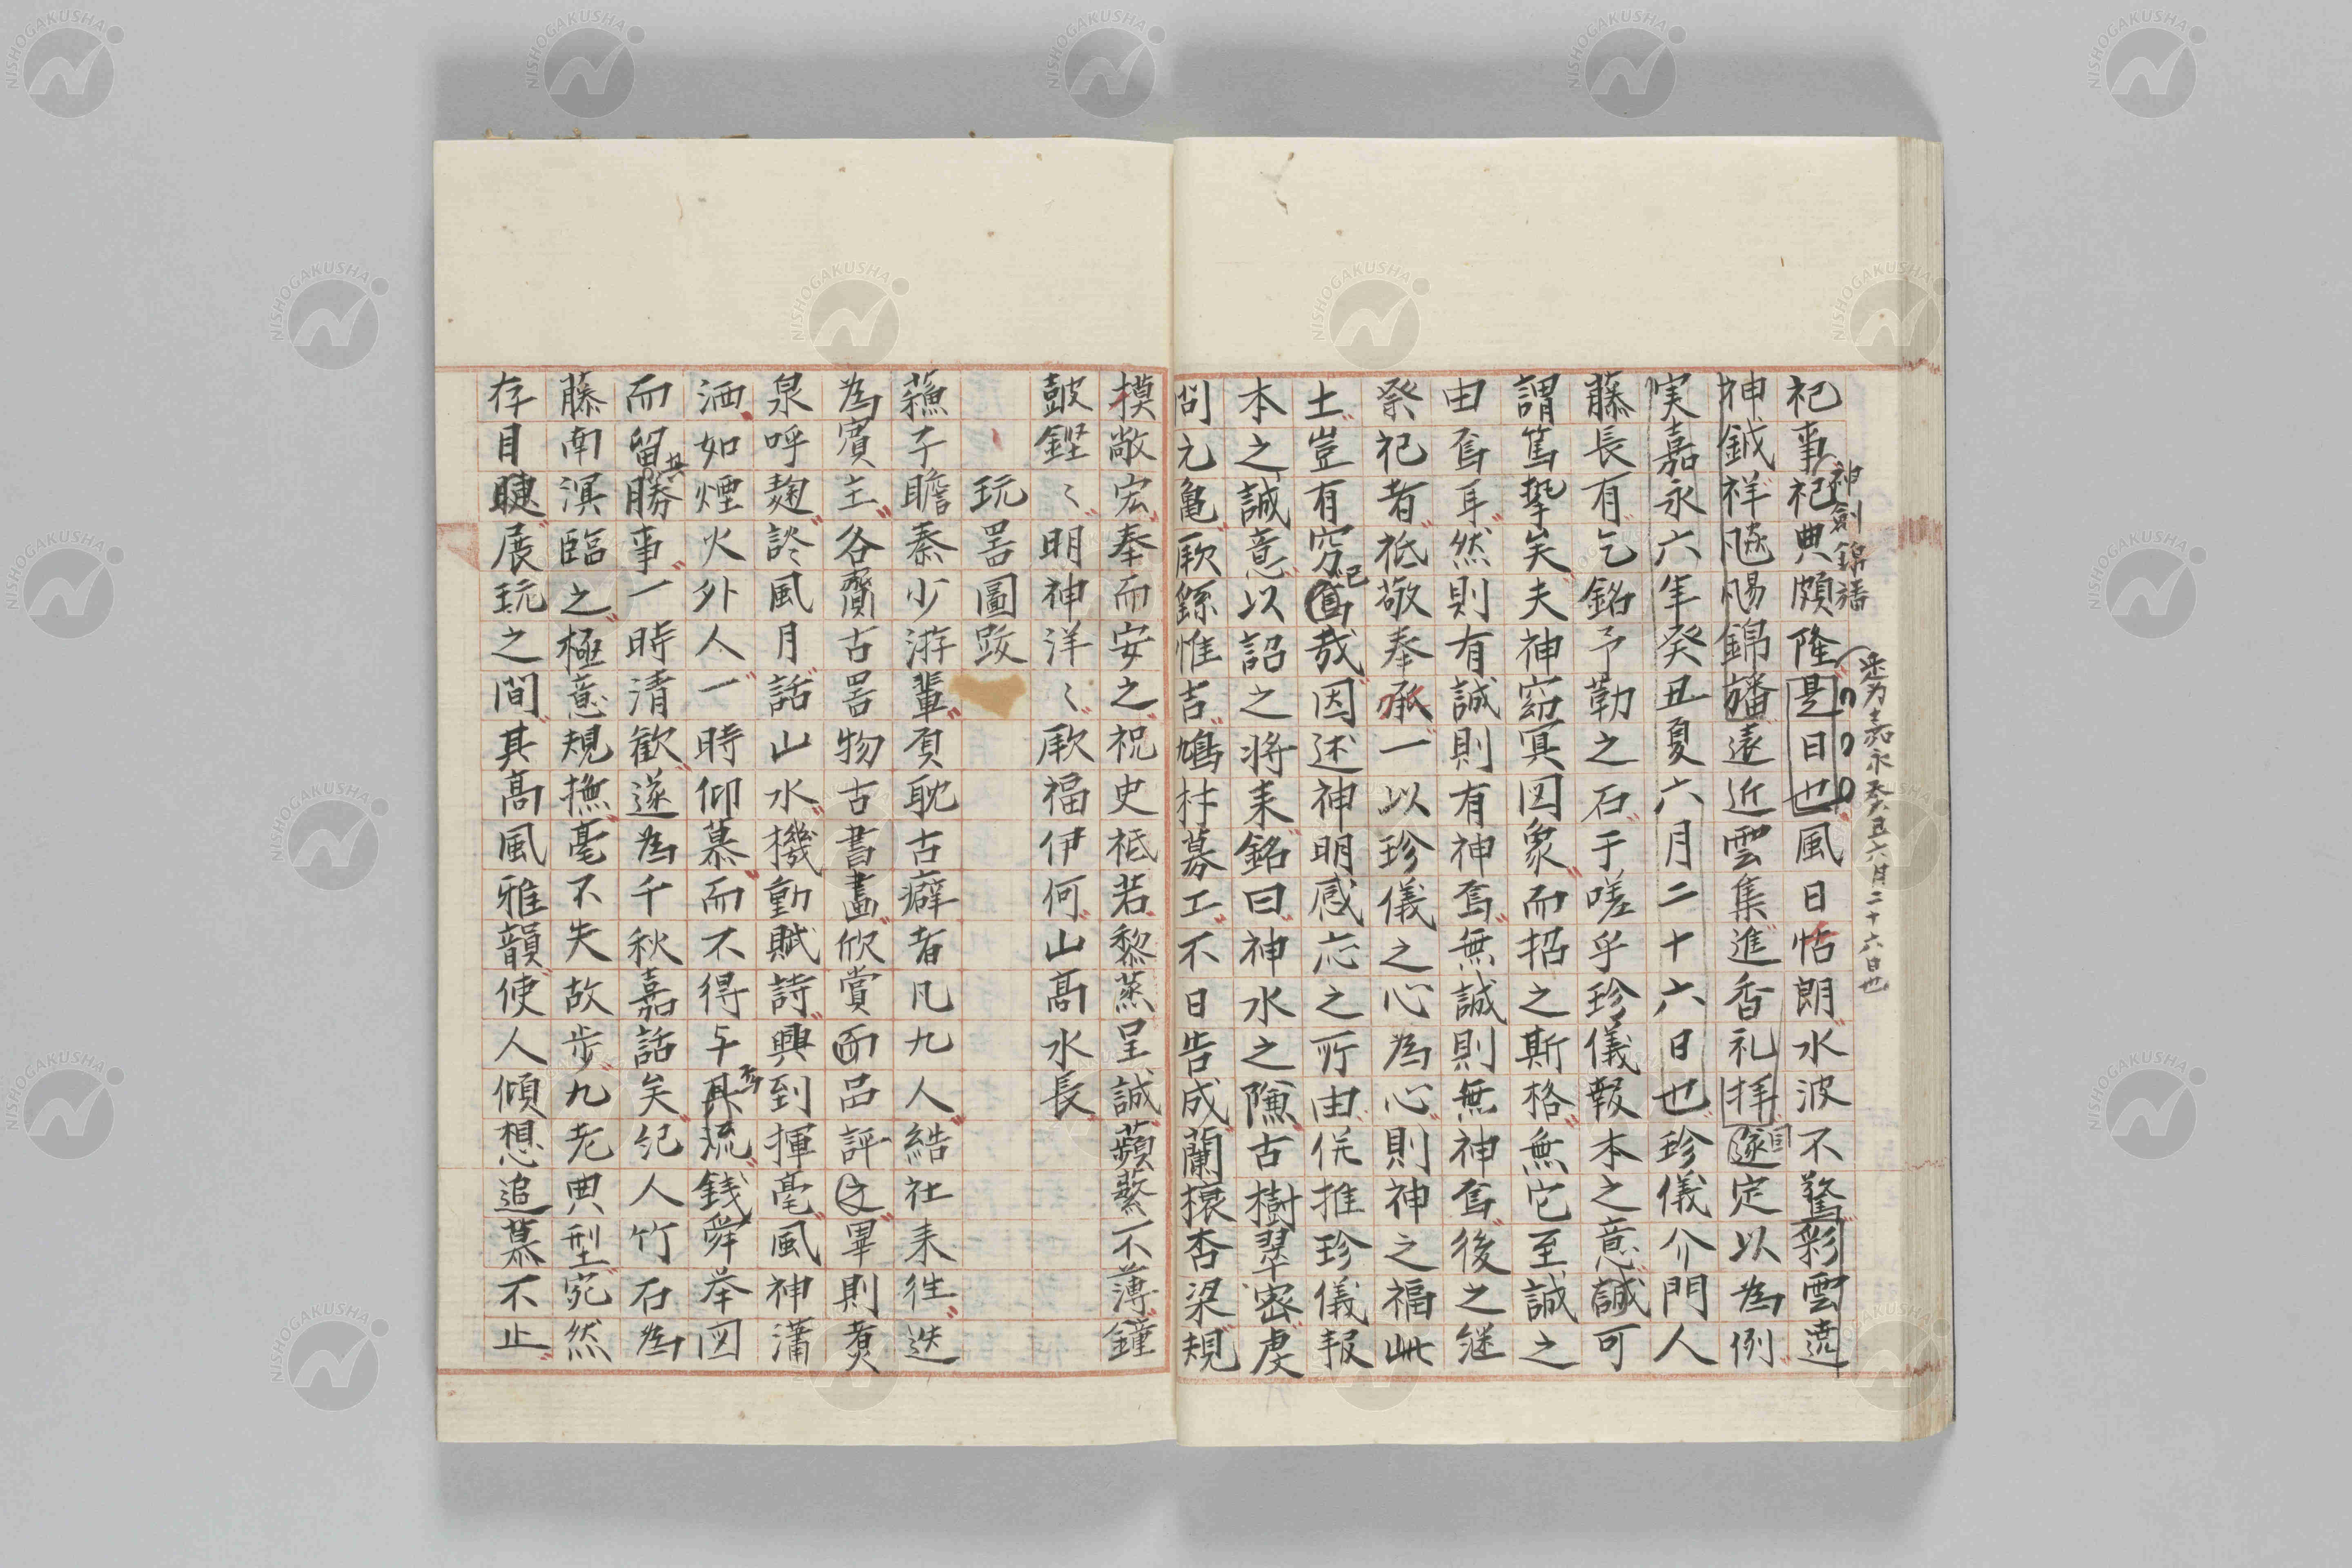 祀事祀典頗隆是日也風日恬朗水波不驚彩雲遶
神劍錦旛
是为嘉永癸丑六月二十六日也
神鉞祥飈颺錦旛遠近雲集進香礼拝遂定以為例
実嘉永六年癸丑夏六月二十六日也珍儀介門人
藤長有乞銘予勒之石于嗟乎珍儀報本之意誠可
謂篤摯矣夫神窈冥罔象而招之斯格無它至誠之
由焉耳然則有誠則有神焉無誠則無神焉後之継
祭祀者祗敬奉承一以珍儀之心為心則神之福此
土豈有窮已焉哉因述神明感応之所由併推珍儀報
本之誠意以詔之将来銘曰神水之隒古樹翠密虔
問元亀厥繇惟吉鳩材募工不日告成蘭榱杏梁規
模敞宏奉而安之祝史祗若黎蒸呈誠蘋蘩不薄鐘
鼓鏗〻明神洋〻厥福伊何山高水長
玩噐圖跋
蘓子瞻秦少游輩頁耽古癖者凡九人結社来徃迭
為賓主各齎古噐物古書畫欣賞而品評之畢則煑
泉呼麹談風月話山水機動賦詩興到揮毫風神蕭
洒如煙火外人一時仰慕而不得与其流銭舜挙図
而留其勝事一時清歓遂為千秋嘉話矣紀人竹石為
藤南溟臨之極意規撫毫不失故歩九老典型宛然
存目睫展玩之間其髙風雅韻使人傾想追慕不止
NISHOGAKUSHA